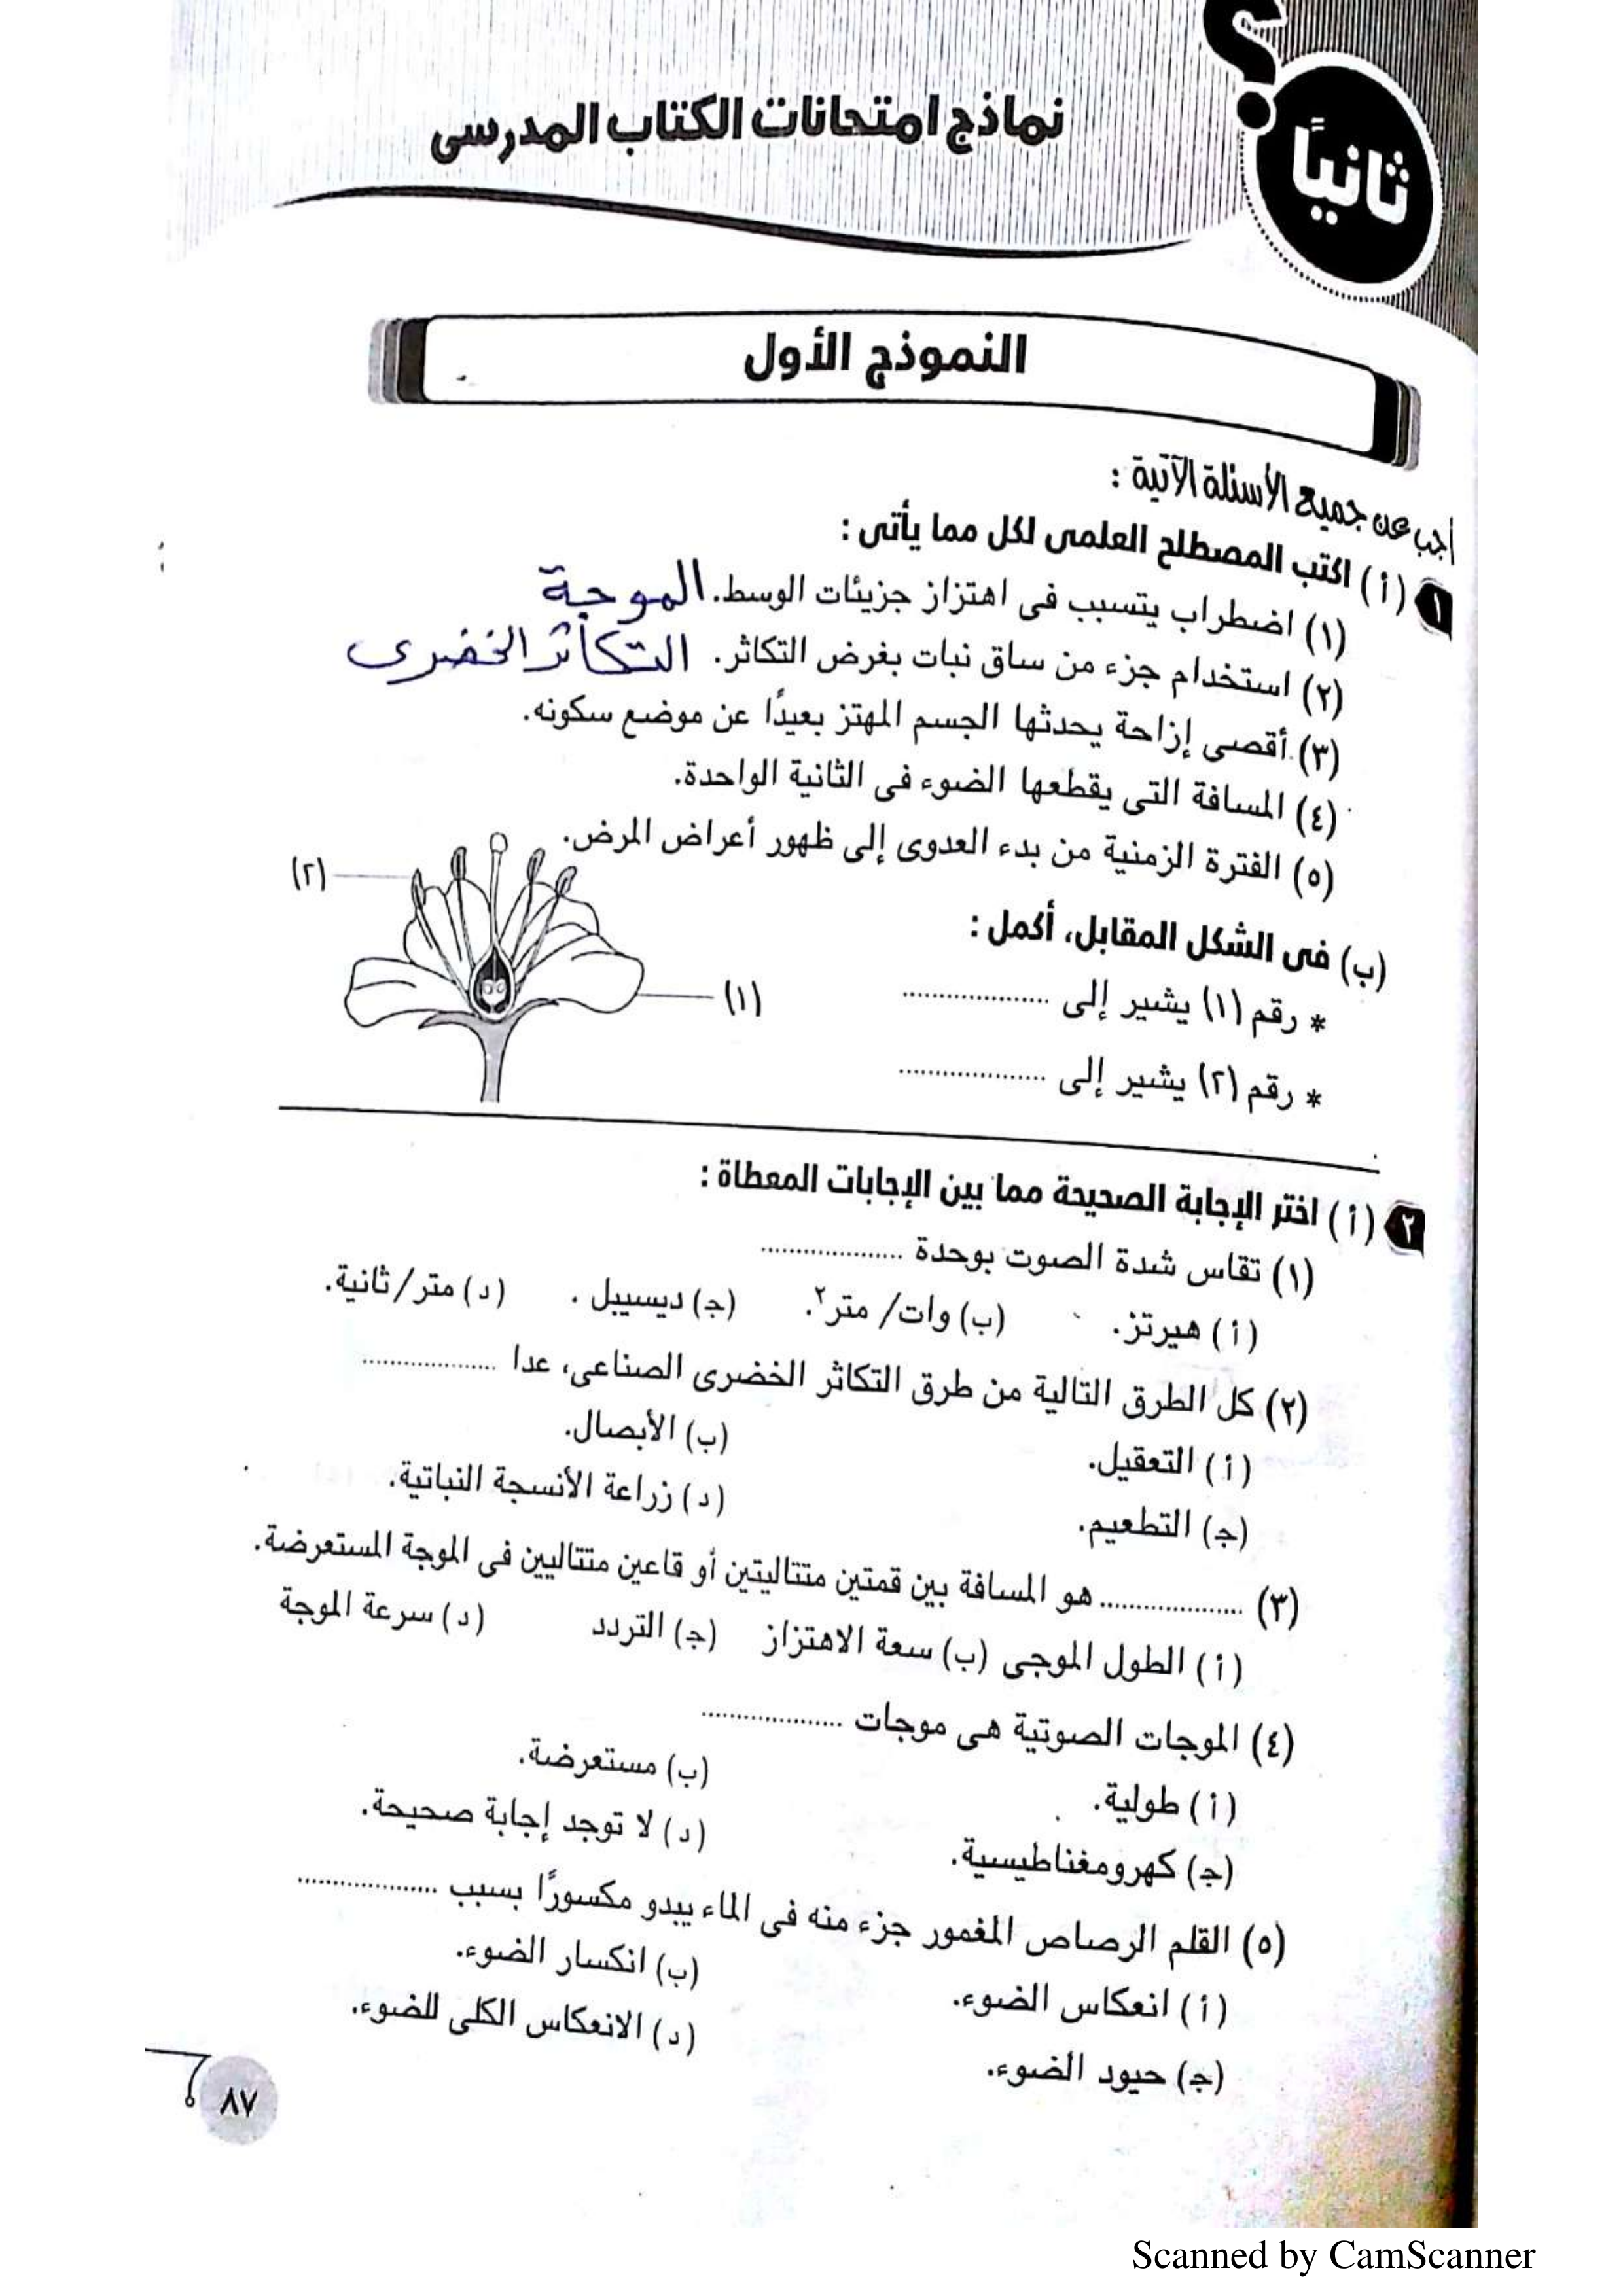 ثانيًا
نماذج امتحانات الكتاب المدرسى
النموذج الأول
أجب عن جميع الأسئلة الآتية :
١ (أ) اكتب المصطلح العلمى لكل مما يأتى :
(١) اضطراب يتسبب فى اهتزاز جزيئات الوسط. الموجة
(٢) استخدام جزء من ساق نبات بغرض التكاثر. التكاثر الخضرى
(٣) أقصى إزاحة يحدثها الجسم المهتز بعيدًا عن موضع سكونه.
(٤) المسافة التى يقطعها الضوء فى الثانية الواحدة.
(٥) الفترة الزمنية من بدء العدوى إلى ظهور أعراض المرض.
(٢)
(ب) فى الشكل المقابل، أكمل :
* رقم (١) يشير إلى ....................
(١)
* رقم (٢) يشير إلى ....................
٢ (أ) اختر الإجابة الصحيحة مما بين الإجابات المعطاة :
(١) تقاس شدة الصوت بوحدة ....................
(أ) هيرتز. (ب) وات/ متر٢. (ج) ديسيبل . (د) متر/ثانية.
(٢) كل الطرق التالية من طرق التكاثر الخضرى الصناعى، عدا ....................
(أ) التعقيل. (ب) الأبصال.
(ج) التطعيم. (د) زراعة الأنسجة النباتية.
(٣) .................... هو المسافة بين قمتين متتاليتين أو قاعين متتاليين فى الموجة المستعرضة.
(أ) الطول الموجى (ب) سعة الاهتزاز (ج) التردد (د) سرعة الموجة
(٤) الموجات الصوتية هى موجات ....................
(أ) طولية. (ب) مستعرضة.
(ج) كهرومغناطيسية. (د) لا توجد إجابة صحيحة.
(٥) القلم الرصاص المغمور جزء منه فى الماء يبدو مكسورًا بسبب ....................
(أ) انعكاس الضوء. (ب) انكسار الضوء.
(ج) حيود الضوء. (د) الانعكاس الكلى للضوء.
٨٧
Scanned by CamScanner